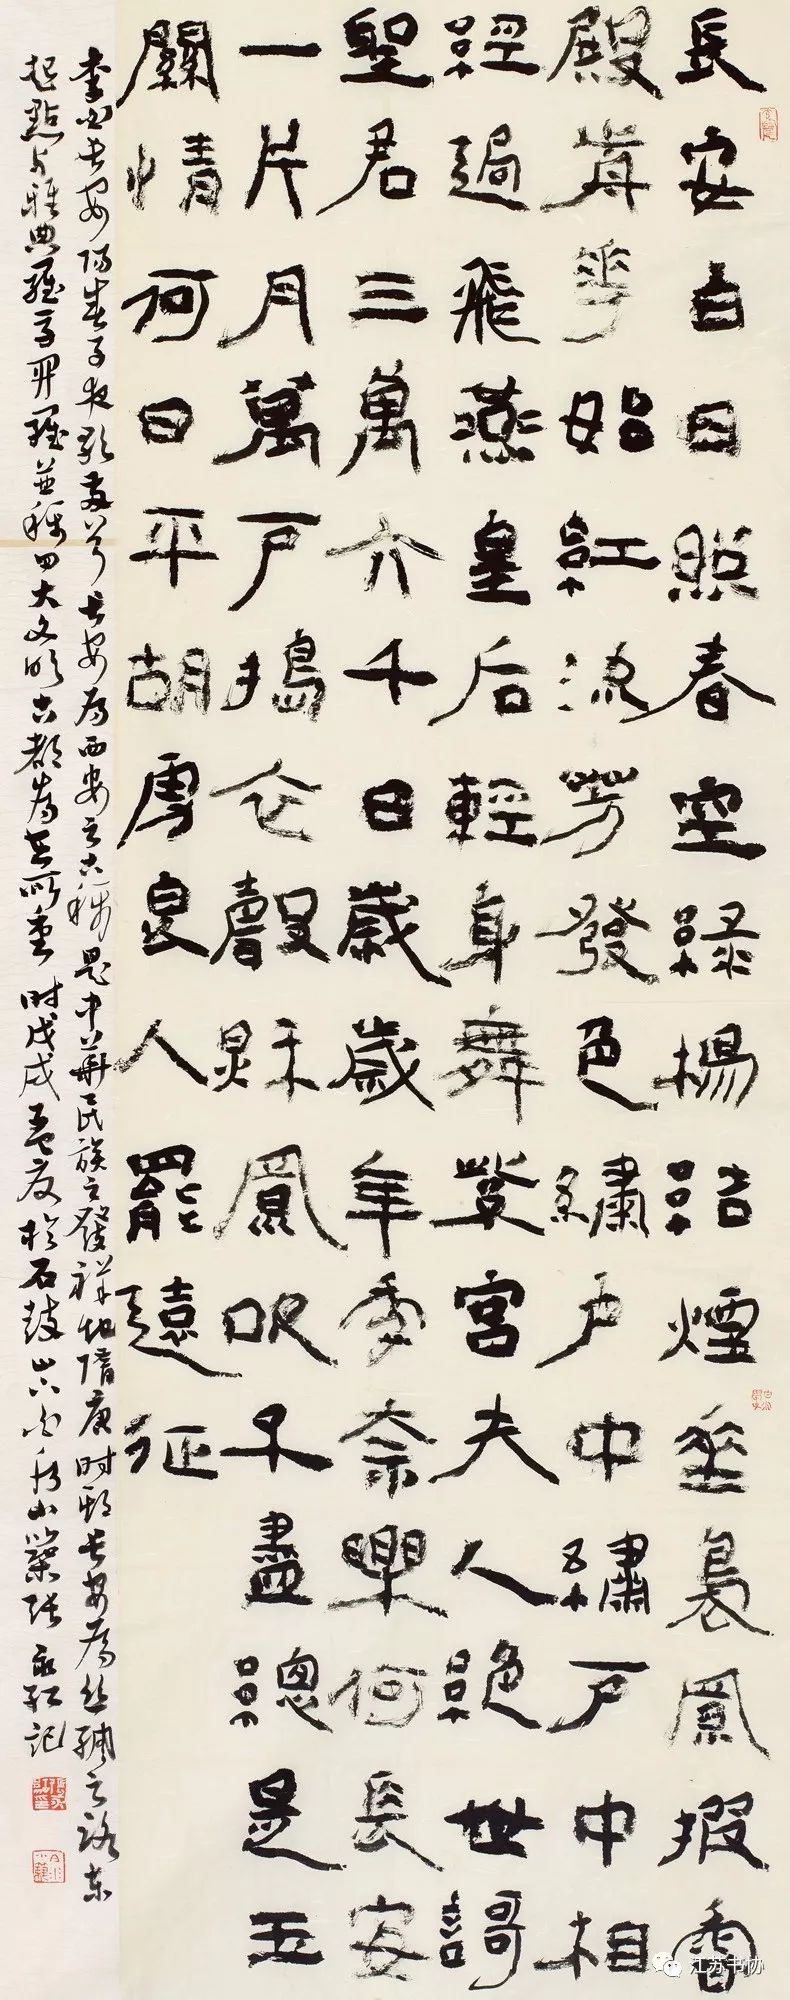 長安白日照春空綠楊結煙垂裊風披香
殿前花始紅流芳發色繡戶中繡戶中相
經過飛燕皇后輕身舞紫宮夫人絕世謌
聖君三萬六千日歲歲年年奈樂何長安
一片月萬戶搗衣聲秋風吹不盡總是玉
關情何日平胡虜良人罷遠征
李白長安陽春子夜歌長安為西安之古稱是中華民族之發祥地隋唐時期長安為絲綢之路東
起點與雅典羅馬開羅並稱四大文明古都為世所重時戊戌孟夏於石鼓山張永紅記
江苏书协